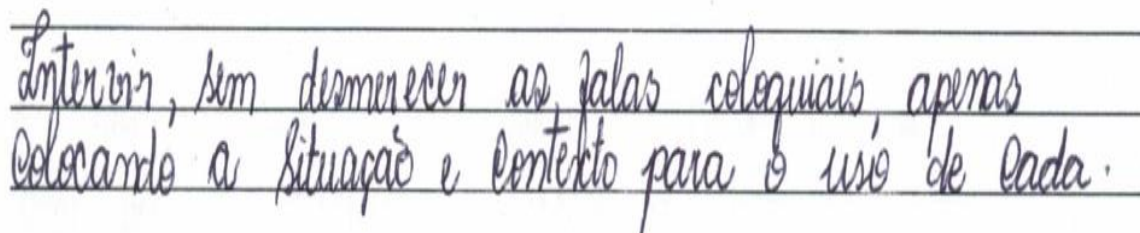 Intervir, sem desmerecer as falas coloquiais, apenas
colocando a situação e contexto para o uso de cada.